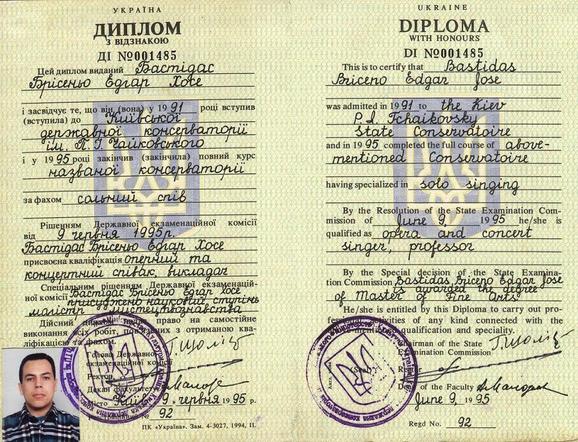 УКРАЇНА
ДИПЛОМ
З ВІДЗНАКОЮ
ДІ №001485
Цей диплом виданий Бастідас
Брісеньо Едгар Хосе
і засвідчує те, що він (вона) у 1991 році вступив
(вступила) до Київської
державної консерваторії
ім. П. І. Чайковського
і у 1995 році закінчив (закінчила) повний курс
названої консерваторії
за фахом сольний спів
Рішенням Державної екзаменаційної комісії
від 9 червня 1995р.
Бастідас Брісеньо Едгар Хосе
присвоєна кваліфікація оперний та
концертний співак, викладач
Спеціальним рішенням Державної екзаменацій-
ної комісії Бастідас Брісеньо Едгар Хосе
присуджено науковий ступінь
магістр мистецтвознавства
Дійсний диплом дає право на самостійне
виконання всіх робіт, з отриманою ква-
ліфікацією та фахом.
Голова Державної
екзаменаційної комісії
Ректор
Декан факультету
М. Київ, 9 червня 1995 р.
№ 92
ПК «Україна». Зам. 4-3027, 1994, II.
UKRAINE
DIPLOMA
WITH HONOURS
DI №001485
This is to certify that Bastidas
Briceno Edgar Jose
was admitted in 1991 to the Kiev
P. I. Tchaikovsky
State Conservatoire
and in 1995 completed the full course of above-
mentioned Conservatoire
having specialized in solo singing
By the Resolution of the State Examination Com-
mission of June 9, 1995 he/she is
qualified as opera and concert
singer, professor
By the Special decision of the State Examina-
tion Commission Bastidas Briceno Edgar Jose
is awarded the degree
of Master of Fine Arts
He/she is entitled by this Diploma to carry out pro-
activities of any kind connected with the
qualification and speciality.
Chairman of the State
Examination Commission
Rector
Dean of the Faculty
June 9, 1995
Regd No. 92